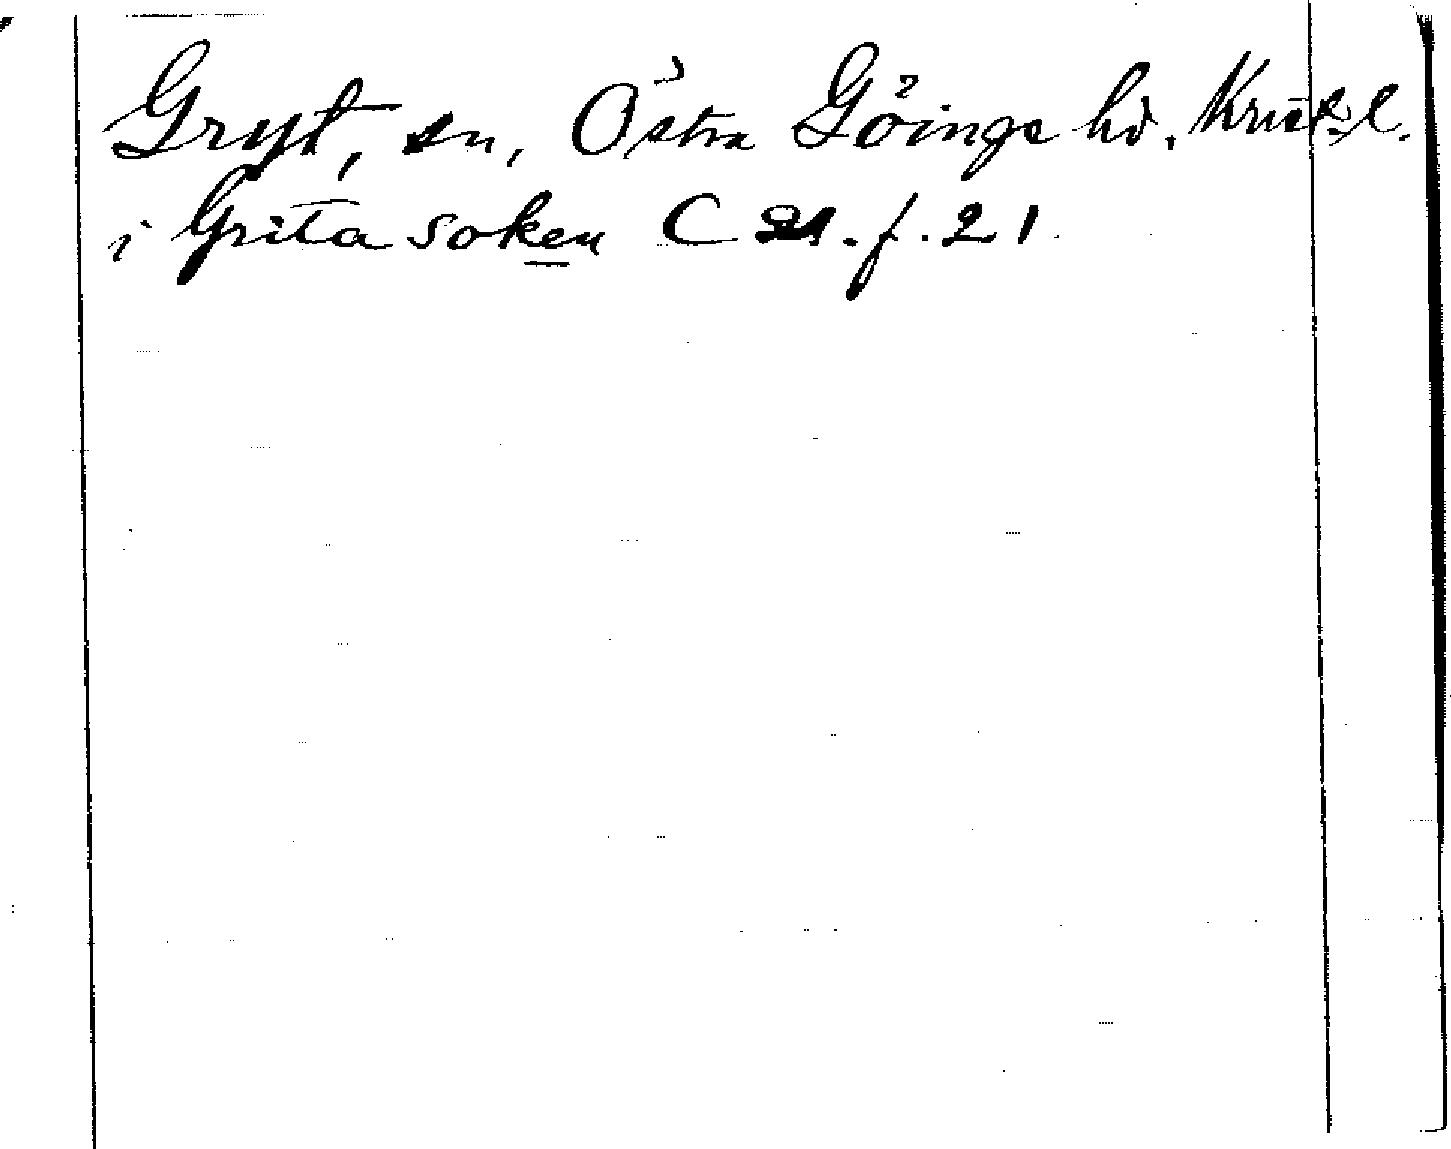 Gryt, sn, Östra Göinge hd, Krist. l.
i Grita soken C 21. f. 21.